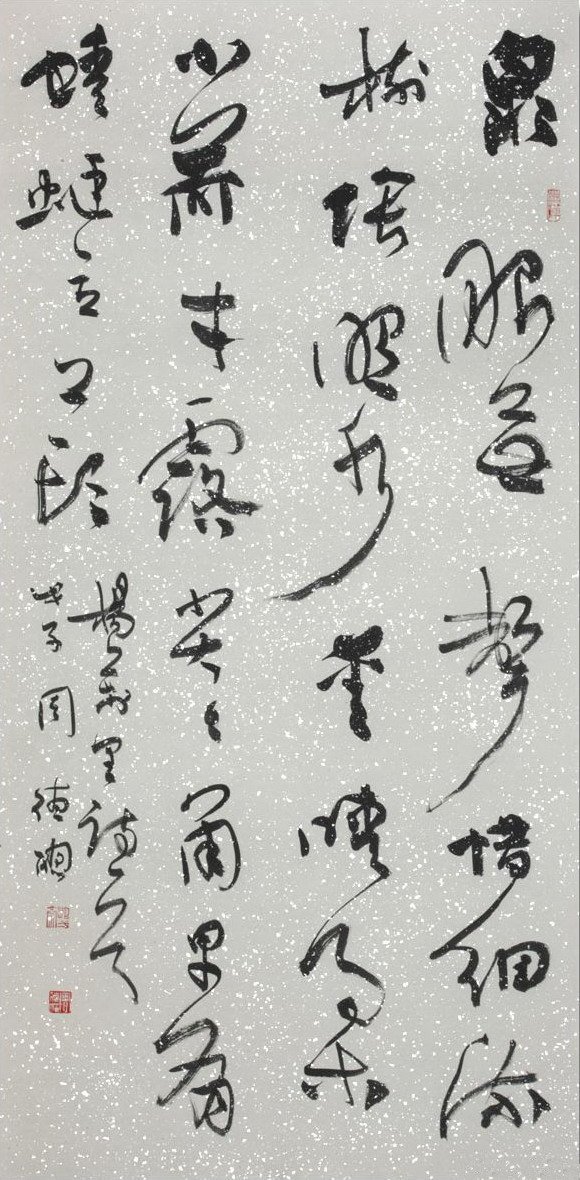 泉眼無聲惜細流
樹陰照水愛晴柔
小荷才露尖尖角早有
蜻蜓立上頭
楊萬里詩
周德